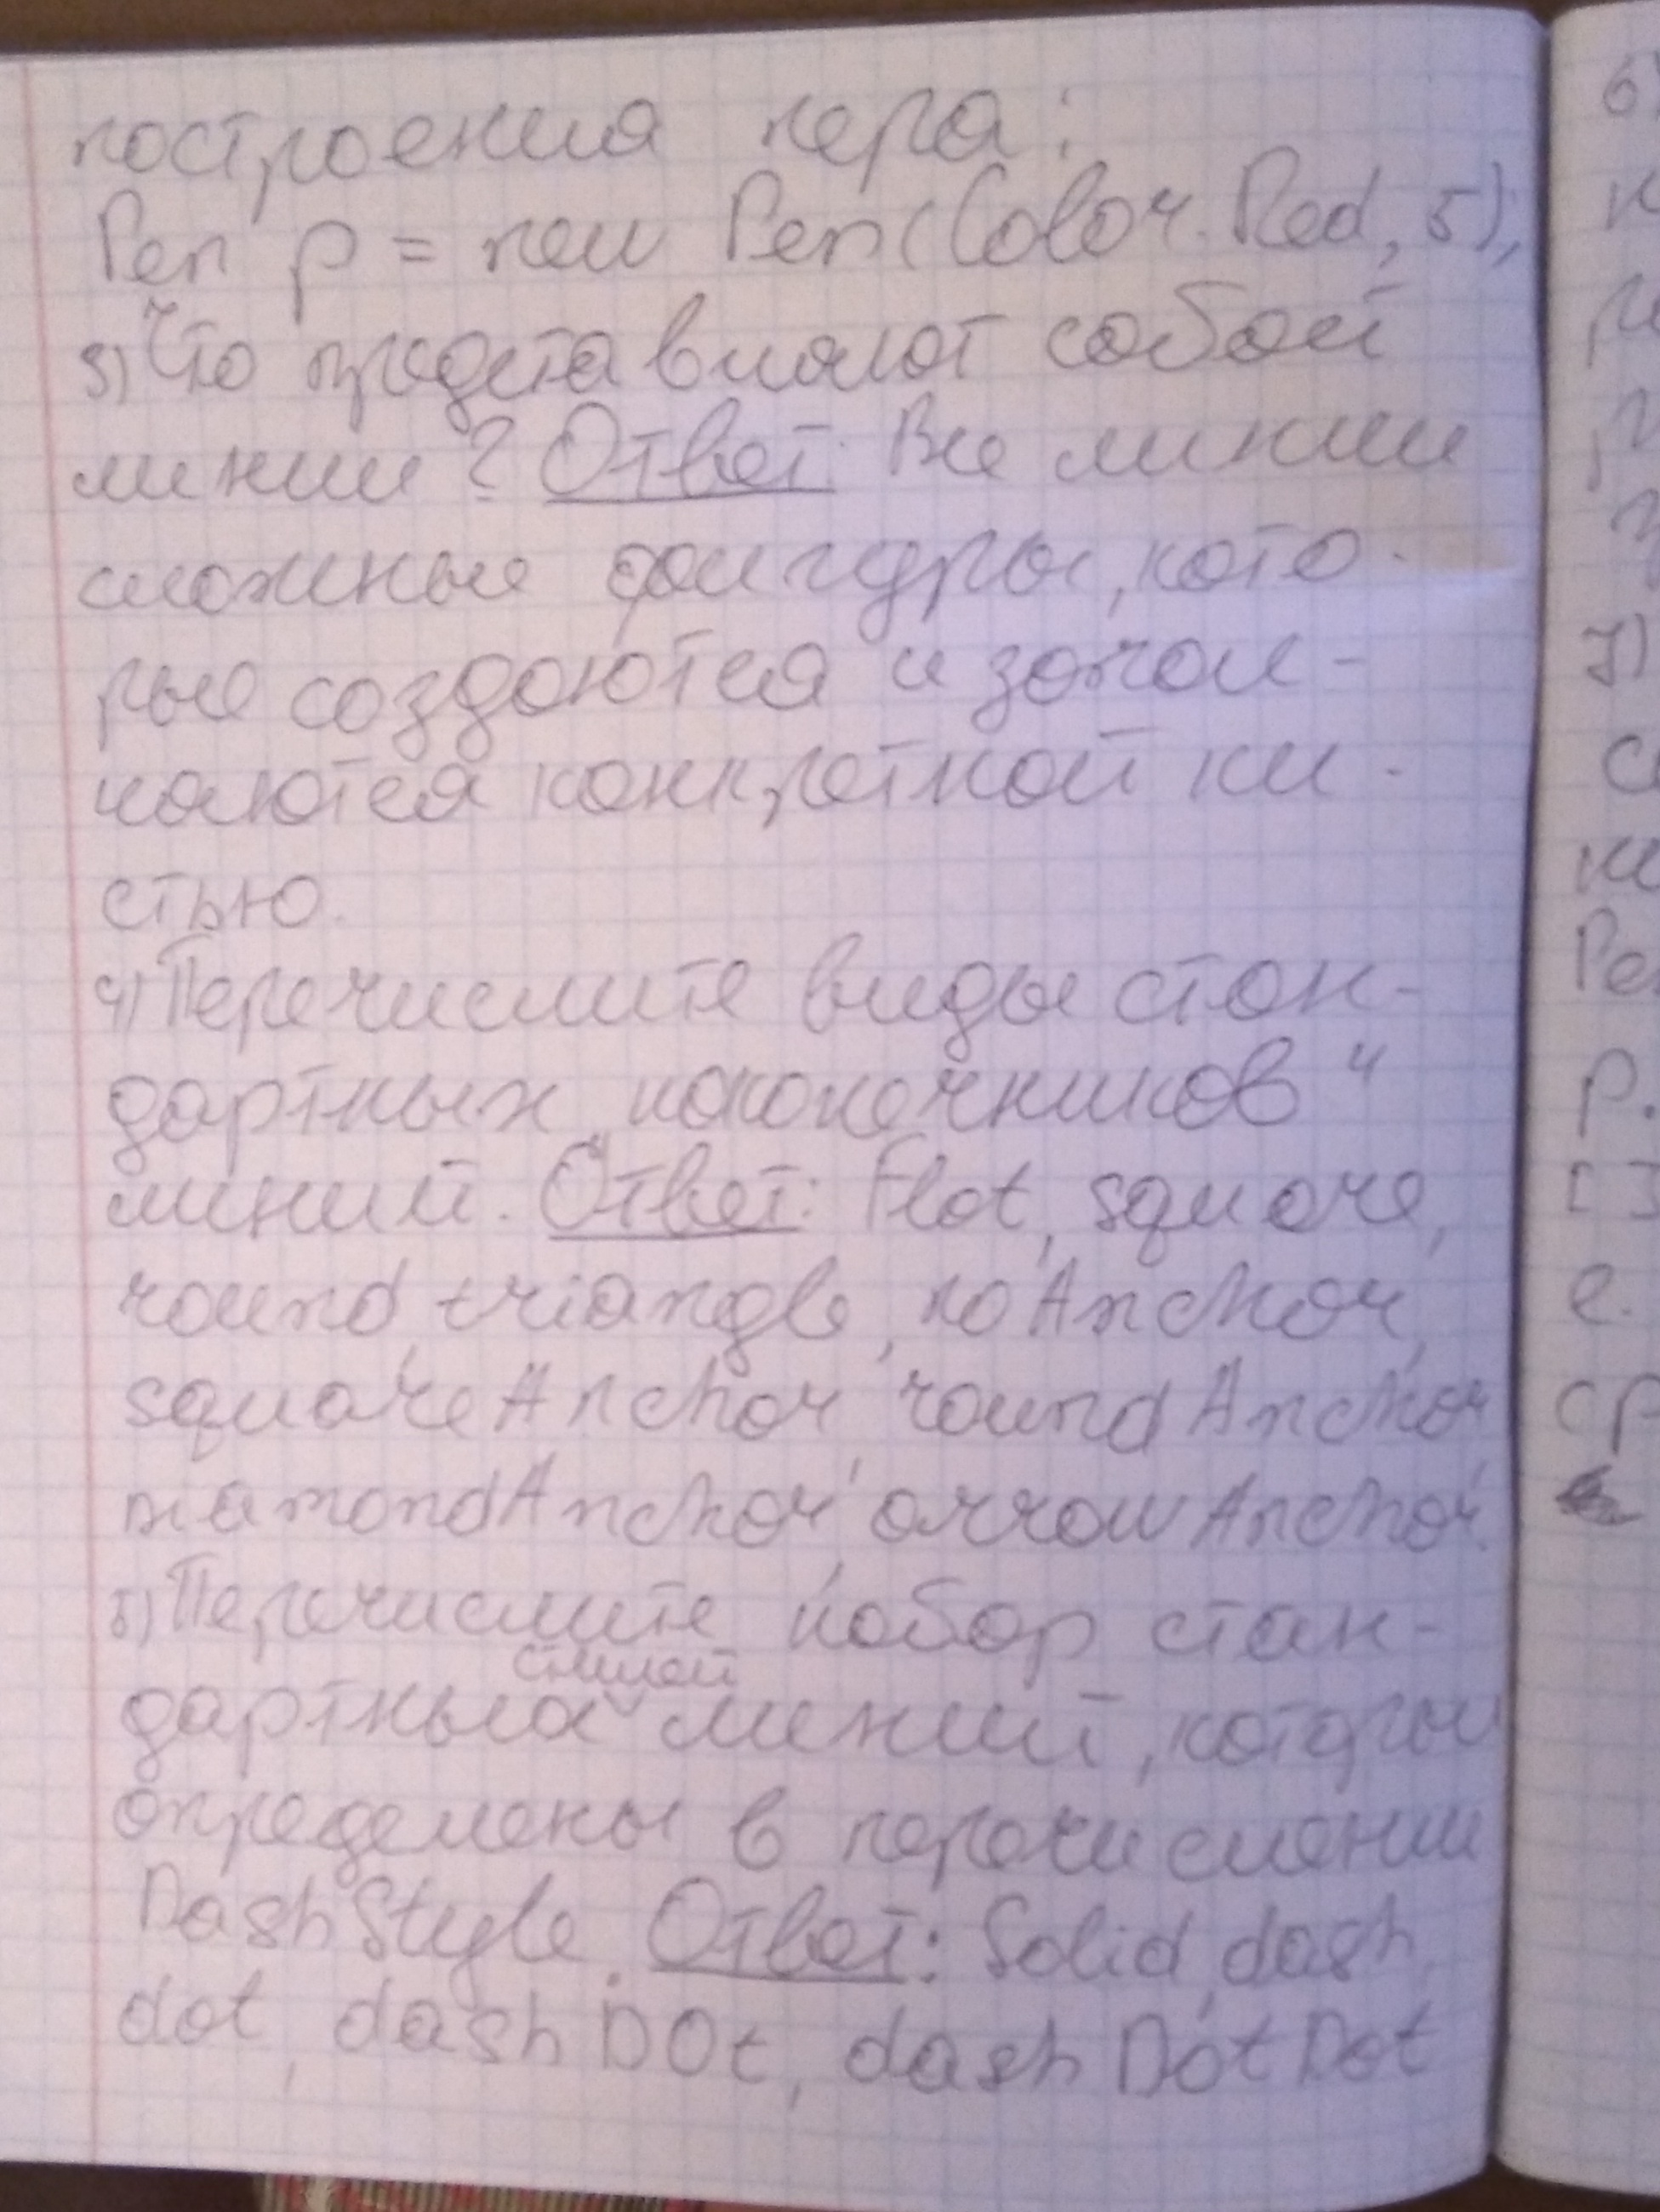 построения пера:
Pen p = new Pen(Color.Red, 5),
3) Что представляют собой
линии? Ответ: Все линии
сложные фигуры, кото-
рые создаются и закан-
чаются конкретной ки-
стью.
4) Перечислите виды стан-
дартных „наконечников"
линий. Ответ: Flat, square,
round, triangle, noAnchor,
squareAnchor, roundAnchor
DiamondAnchor, arrowAnchor.
5) Перечислите набор стан-
стилей
дартных линий, которы
определены в перечислении
DashStyle. Ответ: Solid, dash,
dot, dashDOt, dashDotDot
6)
7)
Pen
p.
[ ]
e.